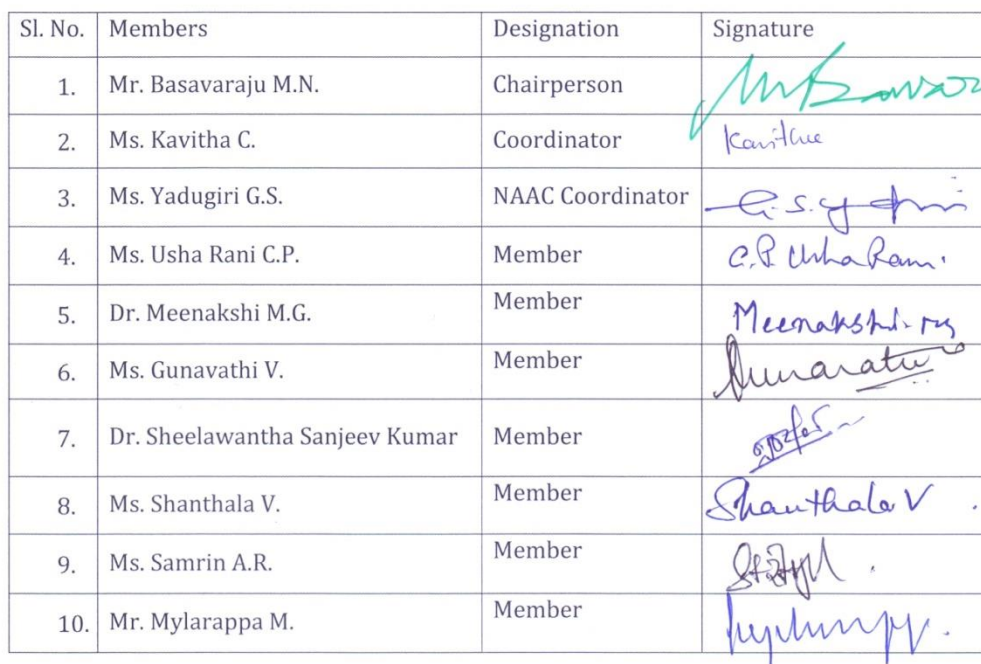 Sl. No. Members Designation Signature
1. Mr. Basavaraju M.N. Chairperson
2. Ms. Kavitha C. Coordinator Kavitha
3. Ms. Yadugiri G.S. NAAC Coordinator G.S.
4. Ms. Usha Rani C.P. Member C.P. Usha Rani.
5. Dr. Meenakshi M.G. Member Meenakshi. MG
6. Ms. Gunavathi V. Member
7. Dr. Sheelawantha Sanjeev Kumar Member
8. Ms. Shanthala V. Member Shanthala V.
9. Ms. Samrin A.R. Member
10. Mr. Mylarappa M. Member